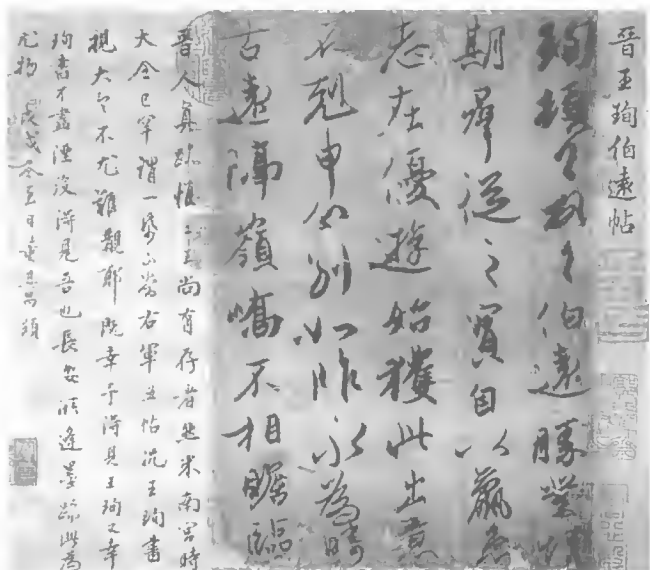 晋王珣伯遠帖
珣頓首頓首伯遠勝業情
期群從之寶自以羸患
志在優遊始獲此出意
不剋申分別如昨永為疇
古遠隔嶺嶠不相瞻臨
晉人真跡惟二王尚有存者然米南宮時
大令已罕謂一紙可當右軍五帖況王珣書
視大令不尤難覯耶既幸予得見王珣又幸
珣書不盡湮沒得見吾也長安所逢墨跡此為
尤物戊戌冬至日董其昌題